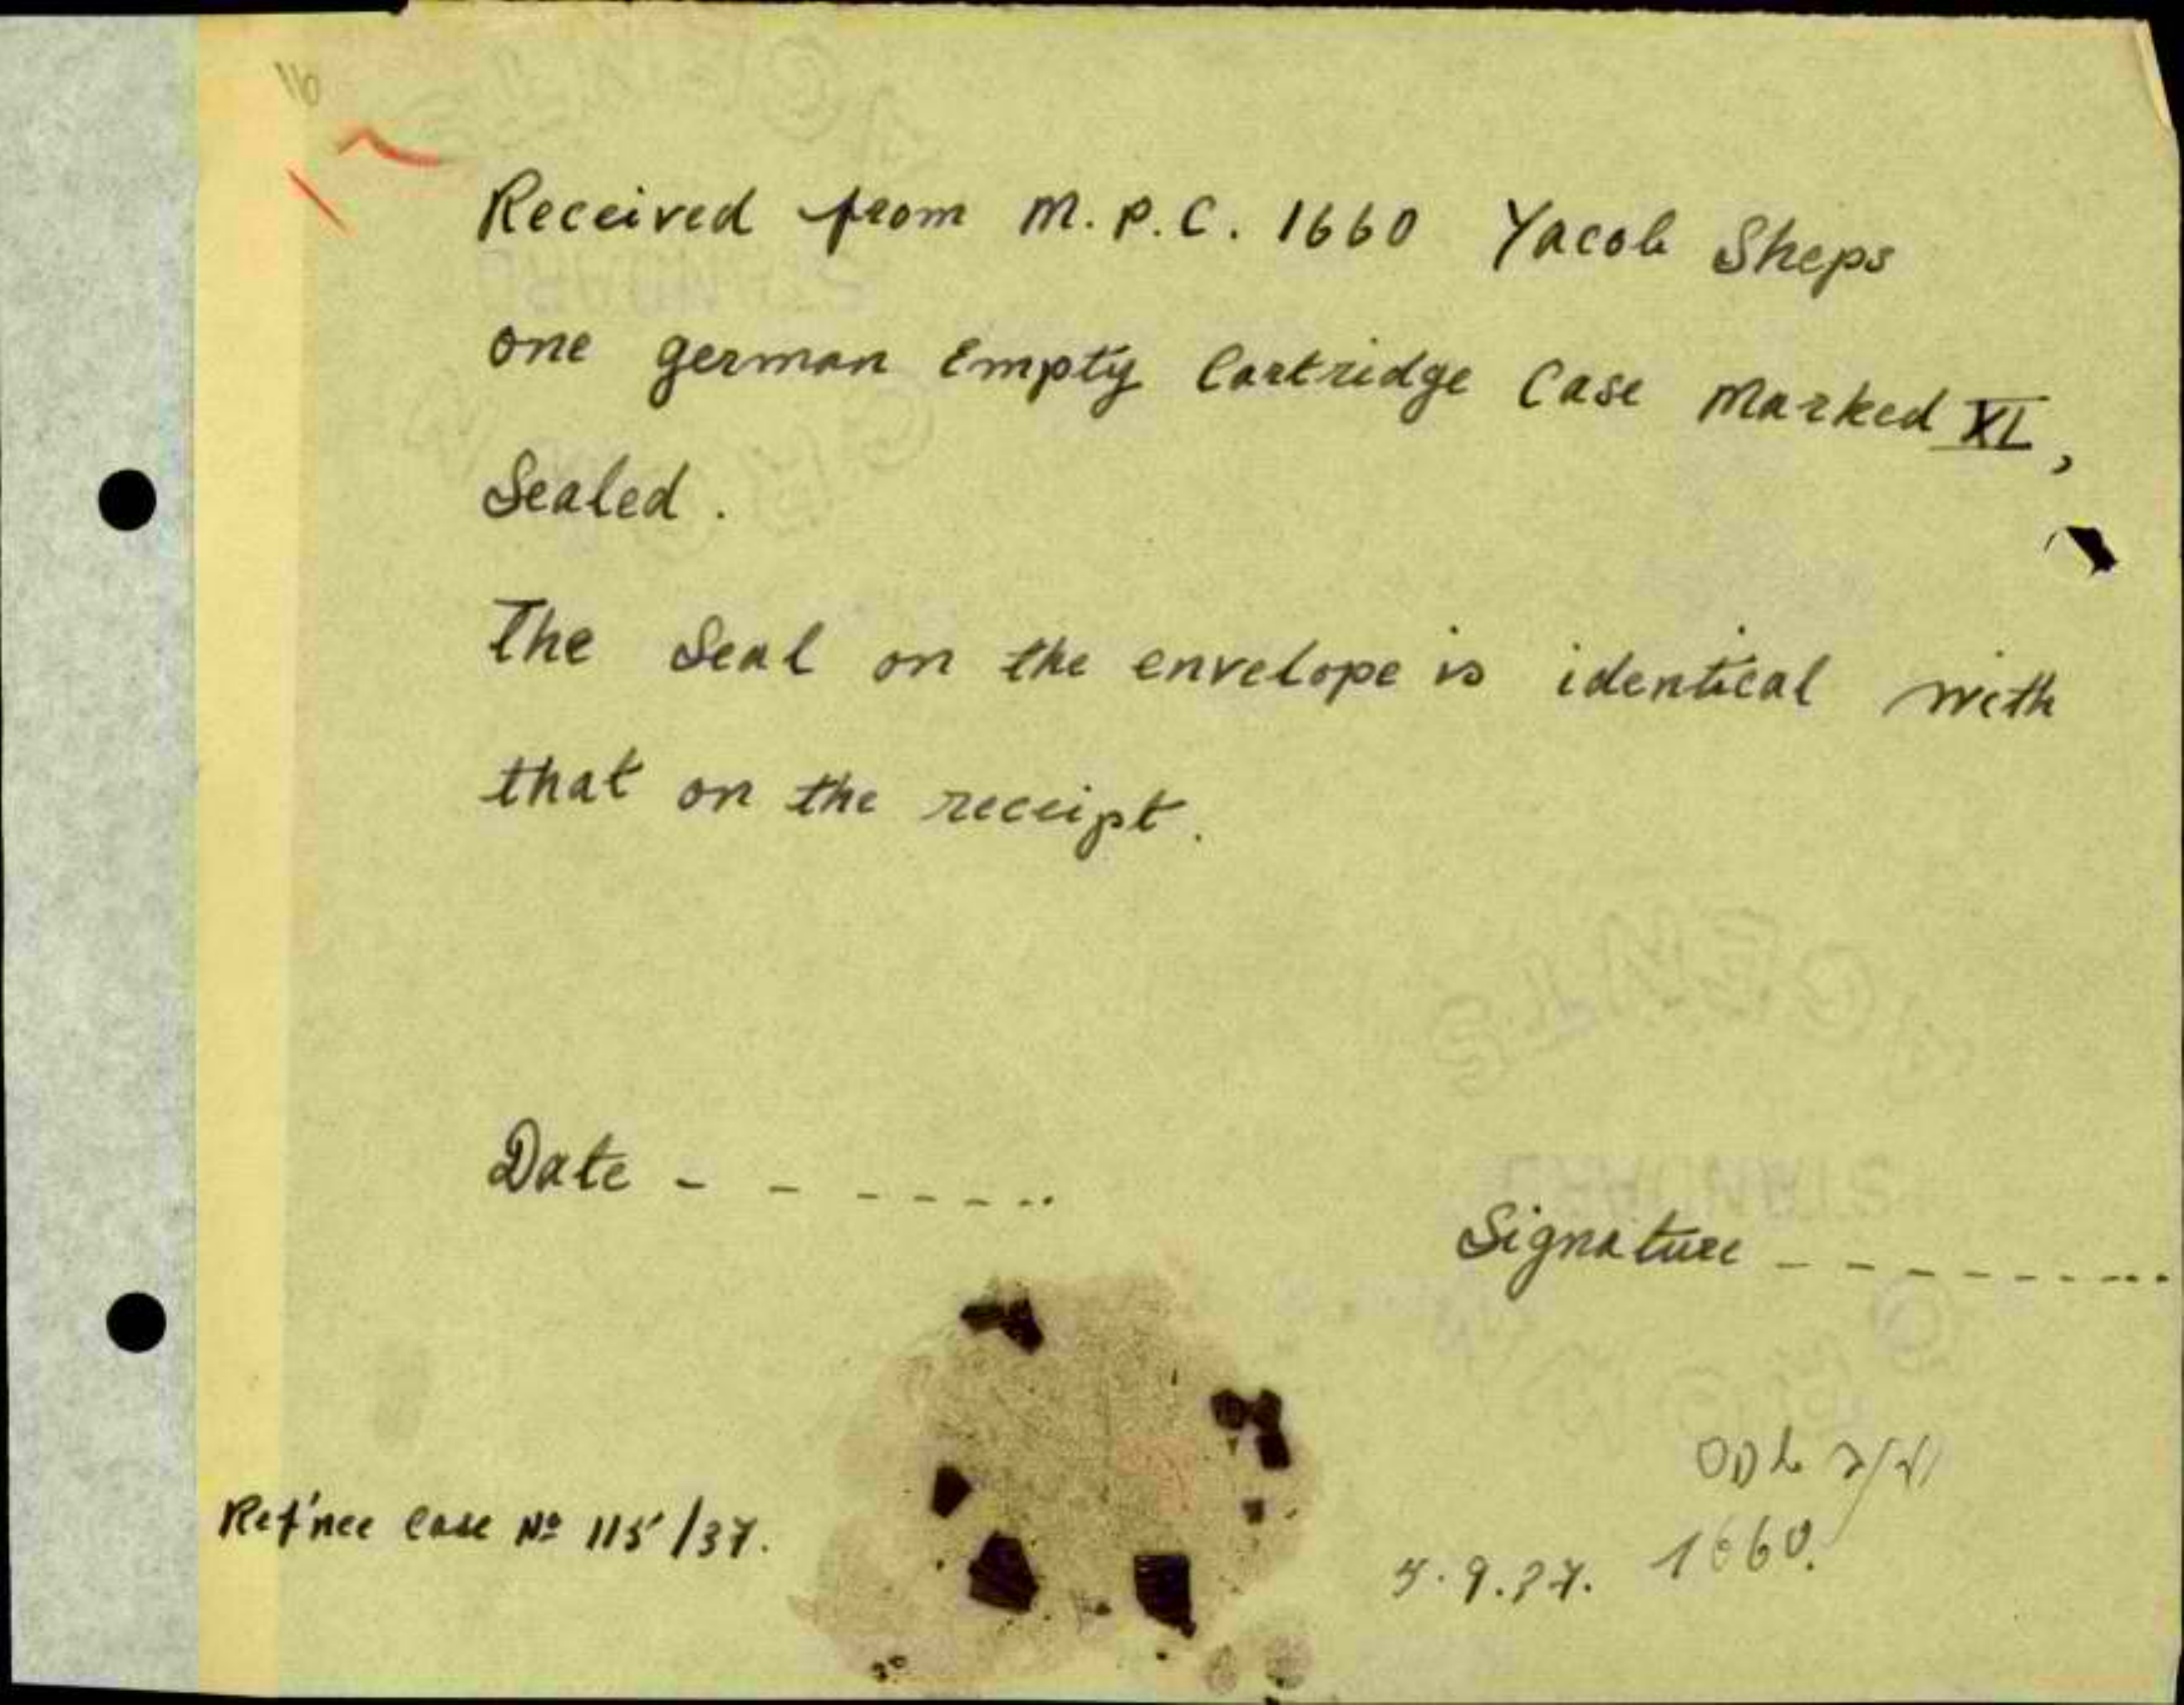 16
Received from M.P.C. 1660 Yacob Sheps
one german Empty Cartridge Case Marked XL,
Sealed.
The Seal on the envelope is identical with
that on the receipt.
Date - - - - - - - ..
Signature - - - - - - - - ...
Ref'nce Case Nº 115/37.
1660.
9.37.